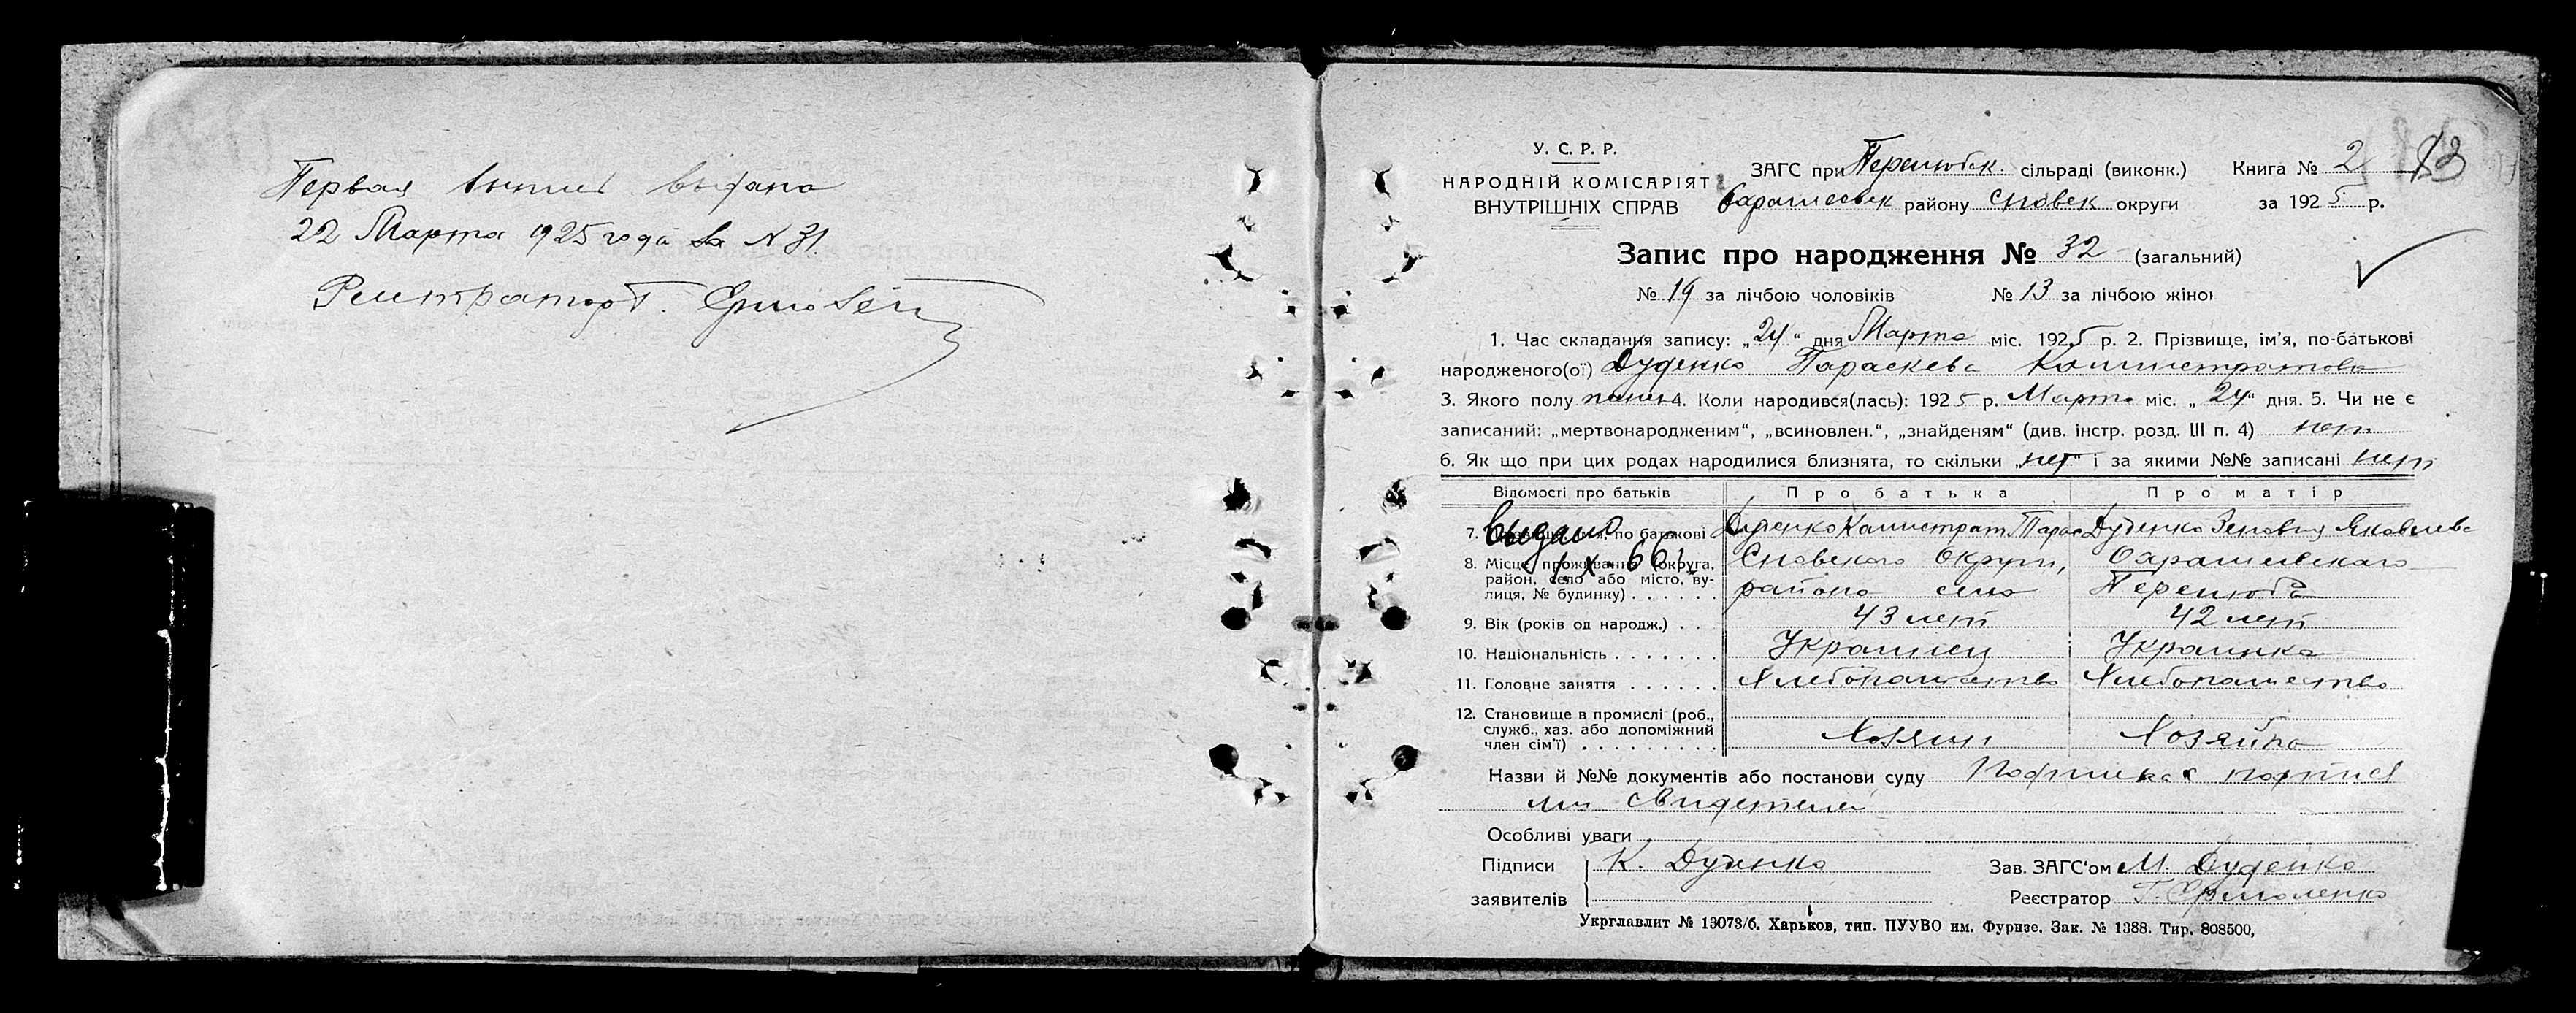 Первая выпись выдана
22 Марта 1925 года за № 31.
Регистратор Г. Ермолен
У. С. Р. Р.
НАРОДНІЙ КОМІСАРІЯТ
ВНУТРІШНІХ СПРАВ
ЗАГС при Перелюбск. сільраді (виконк.) Книга № 2 13
району Сновск округи за 1925 р.
Запис про народження № 32 (загальний)
№ 19 за лічбою чоловіків № 13 за лічбою жінок
1. Час складання запису: „24“ дня Марта міс. 1925 р. 2. Прізвище, ім'я, по-батькові
народженого(ої) Дуденко Параскева Калистратовн
3. Якого полу 4. Коли народився(лась): 1925 р. Марта міс. „24“ дня. 5. Чи не є
записаний: „мертвонародженим“, „всиновлен.“, „знайденям“ (див. інстр. розд. III п. 4) нет
6. Як що при цих родах народилися близнята, то скільки „нет“ і за якими №№ записані нет
Відомості про батьків Про батька Про матір
7. Прізвище, ім'я, по батькові Дуденко Калистрат Тарас Дуденко Зеновия Яковлевн
выдано
X-66
8. Місце проживання (округа, Сновского Округи,
район, село або місто, ву-
лиця, № будинку) . . . . . . района село Перелюба
9. Вік (років од народж.) . . 43 лет 42 лет
10. Національність . . . . . . . Украинец Украинка
11. Головне заняття . . . . . . Хлебопашество Хлебопашество
12. Становище в промислі (роб.,
служб., хаз. або допоміжний
член сім'ї) . . . . . . . . . . Хозяин Хозяйка
Назви й №№ документів або постанови суду
свидетелей
Особливі уваги
Підписи К. Дуденко Зав. ЗАГС'ом М. Дуденко
заявителів Реєстратор Г. Ермоленко
Укрглавлит № 13073/б. Харьков, тип. ПУУВО им. Фрунзе. Зак. № 1388. Тир. 808500,